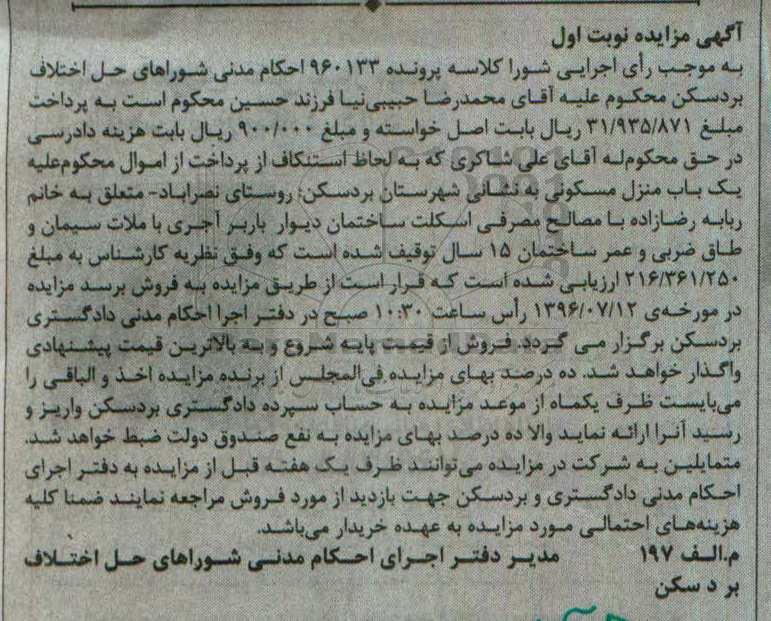 آگهی مزایده نوبت اول
به موجب رأی اجرایی شورا کلاسه پرونده ۹۶۰۱۳۳ احکام مدنی شوراهای حل اختلاف
بردسکن محکوم علیه آقای محمدرضا حبیبی‌نیا فرزند حسین محکوم است به پرداخت
مبلغ ۳۱/۹۳۵/۸۷۱ ریال بابت اصل خواسته و مبلغ ۹۰۰/۰۰۰ ریال بابت هزینه دادرسی
در حق محکوم‌له آقای علی شاکری که به لحاظ استنکاف از پرداخت از اموال محکوم‌علیه
یک باب منزل مسکونی به نشانی شهرستان بردسکن؛ روستای نصراباد- متعلق به خانم
ربابه رضازاده با مصالح مصرفی اسکلت ساختمان دیوار باربر آجری با ملات سیمان و
طاق ضربی و عمر ساختمان ۱۵ سال توقیف شده است که وفق نظریه کارشناس به مبلغ
۲۱۶/۳۶۱/۲۵۰ ارزیابی شده است که قرار است از طریق مزایده به فروش برسد مزایده
در مورخه‌ی ۱۳۹۶/۰۷/۱۲ رأس ساعت ۱۰:۳۰ صبح در دفتر اجرا احکام مدنی دادگستری
بردسکن برگزار می گردد. فروش از قیمت پایه شروع و به بالاترین قیمت پیشنهادی
واگذار خواهد شد. ده درصد بهای مزایده فی‌المجلس از برنده مزایده اخذ و الباقی را
می‌بایست ظرف یکماه از موعد مزایده به حساب سپرده دادگستری بردسکن واریز و
رسید آنرا ارائه نماید والا ده درصد بهای مزایده به نفع صندوق دولت ضبط خواهد شد.
متمایلین به شرکت در مزایده می‌توانند ظرف یک هفته قبل از مزایده به دفتر اجرای
احکام مدنی دادگستری و بردسکن جهت بازدید از مورد فروش مراجعه نمایند ضمنا کلیه
هزینه‌های احتمالی مورد مزایده به عهده خریدار می‌باشد.
م.الف ۱۹۷ مدیر دفتر اجرای احکام مدنی شوراهای حل اختلاف
بر د سکن